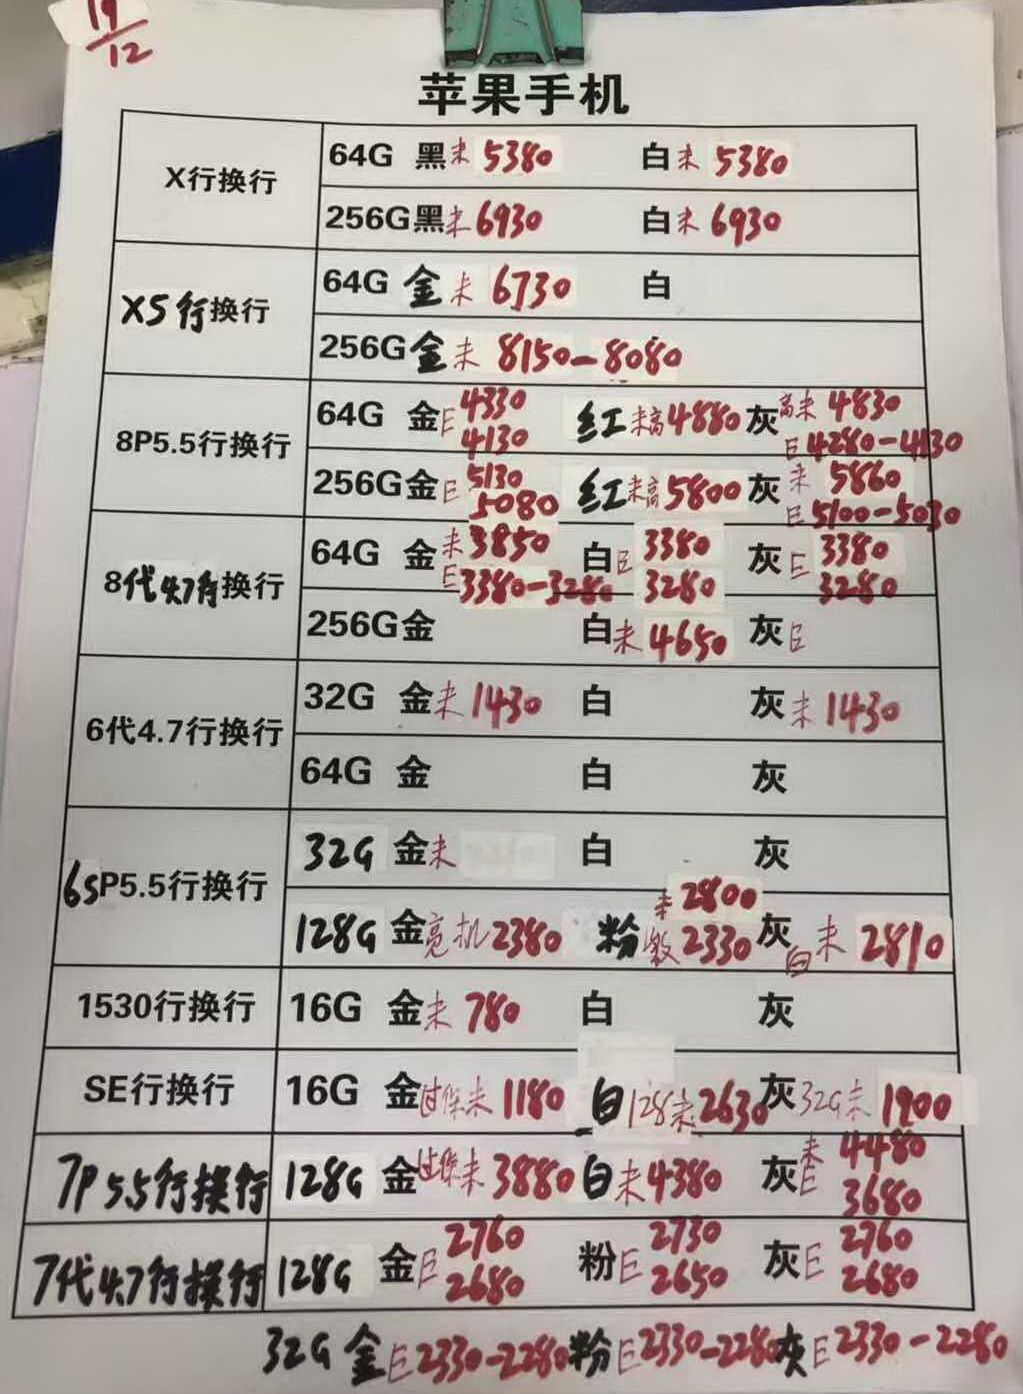 19/12
苹果手机
X行换行
64G 黑未 5380 白未 5380
256G黑未 6930 白未 6930
XS行换行
64G 金未 6730 白
256G金未 8150-8080
8P5.5行换行
64G 金E 4330 4130 红未高4880 灰高未 4830 E 4280-4130
256G金E 5130 5080 红未高5800 灰未 5860 E 5100-5030
8代4.7行换行
64G 金未3850 E3380-3280 白E 3380 3280 灰E 3380 3280
256G金 白未4650 灰E
6代4.7行换行
32G 金未1430 白 灰未 1430
64G 金 白 灰
6SP5.5行换行
32G 金未 白 灰
128G 金亮机2380 粉未2800 激2330 灰 白未 2810
1530行换行
16G 金未 780 白 灰
SE行换行
16G 金过保未 1180 白128未2630 灰32G未 1900
7P5.5行换行
128G 金过保未3880 白未4380 灰未4480 E3680
7代4.7行换行
128G 金E 2760 2680 粉E 2730 2650 灰E 2760 2680
32G 金E2330-2280 粉E2330-2280 灰E2330-2280